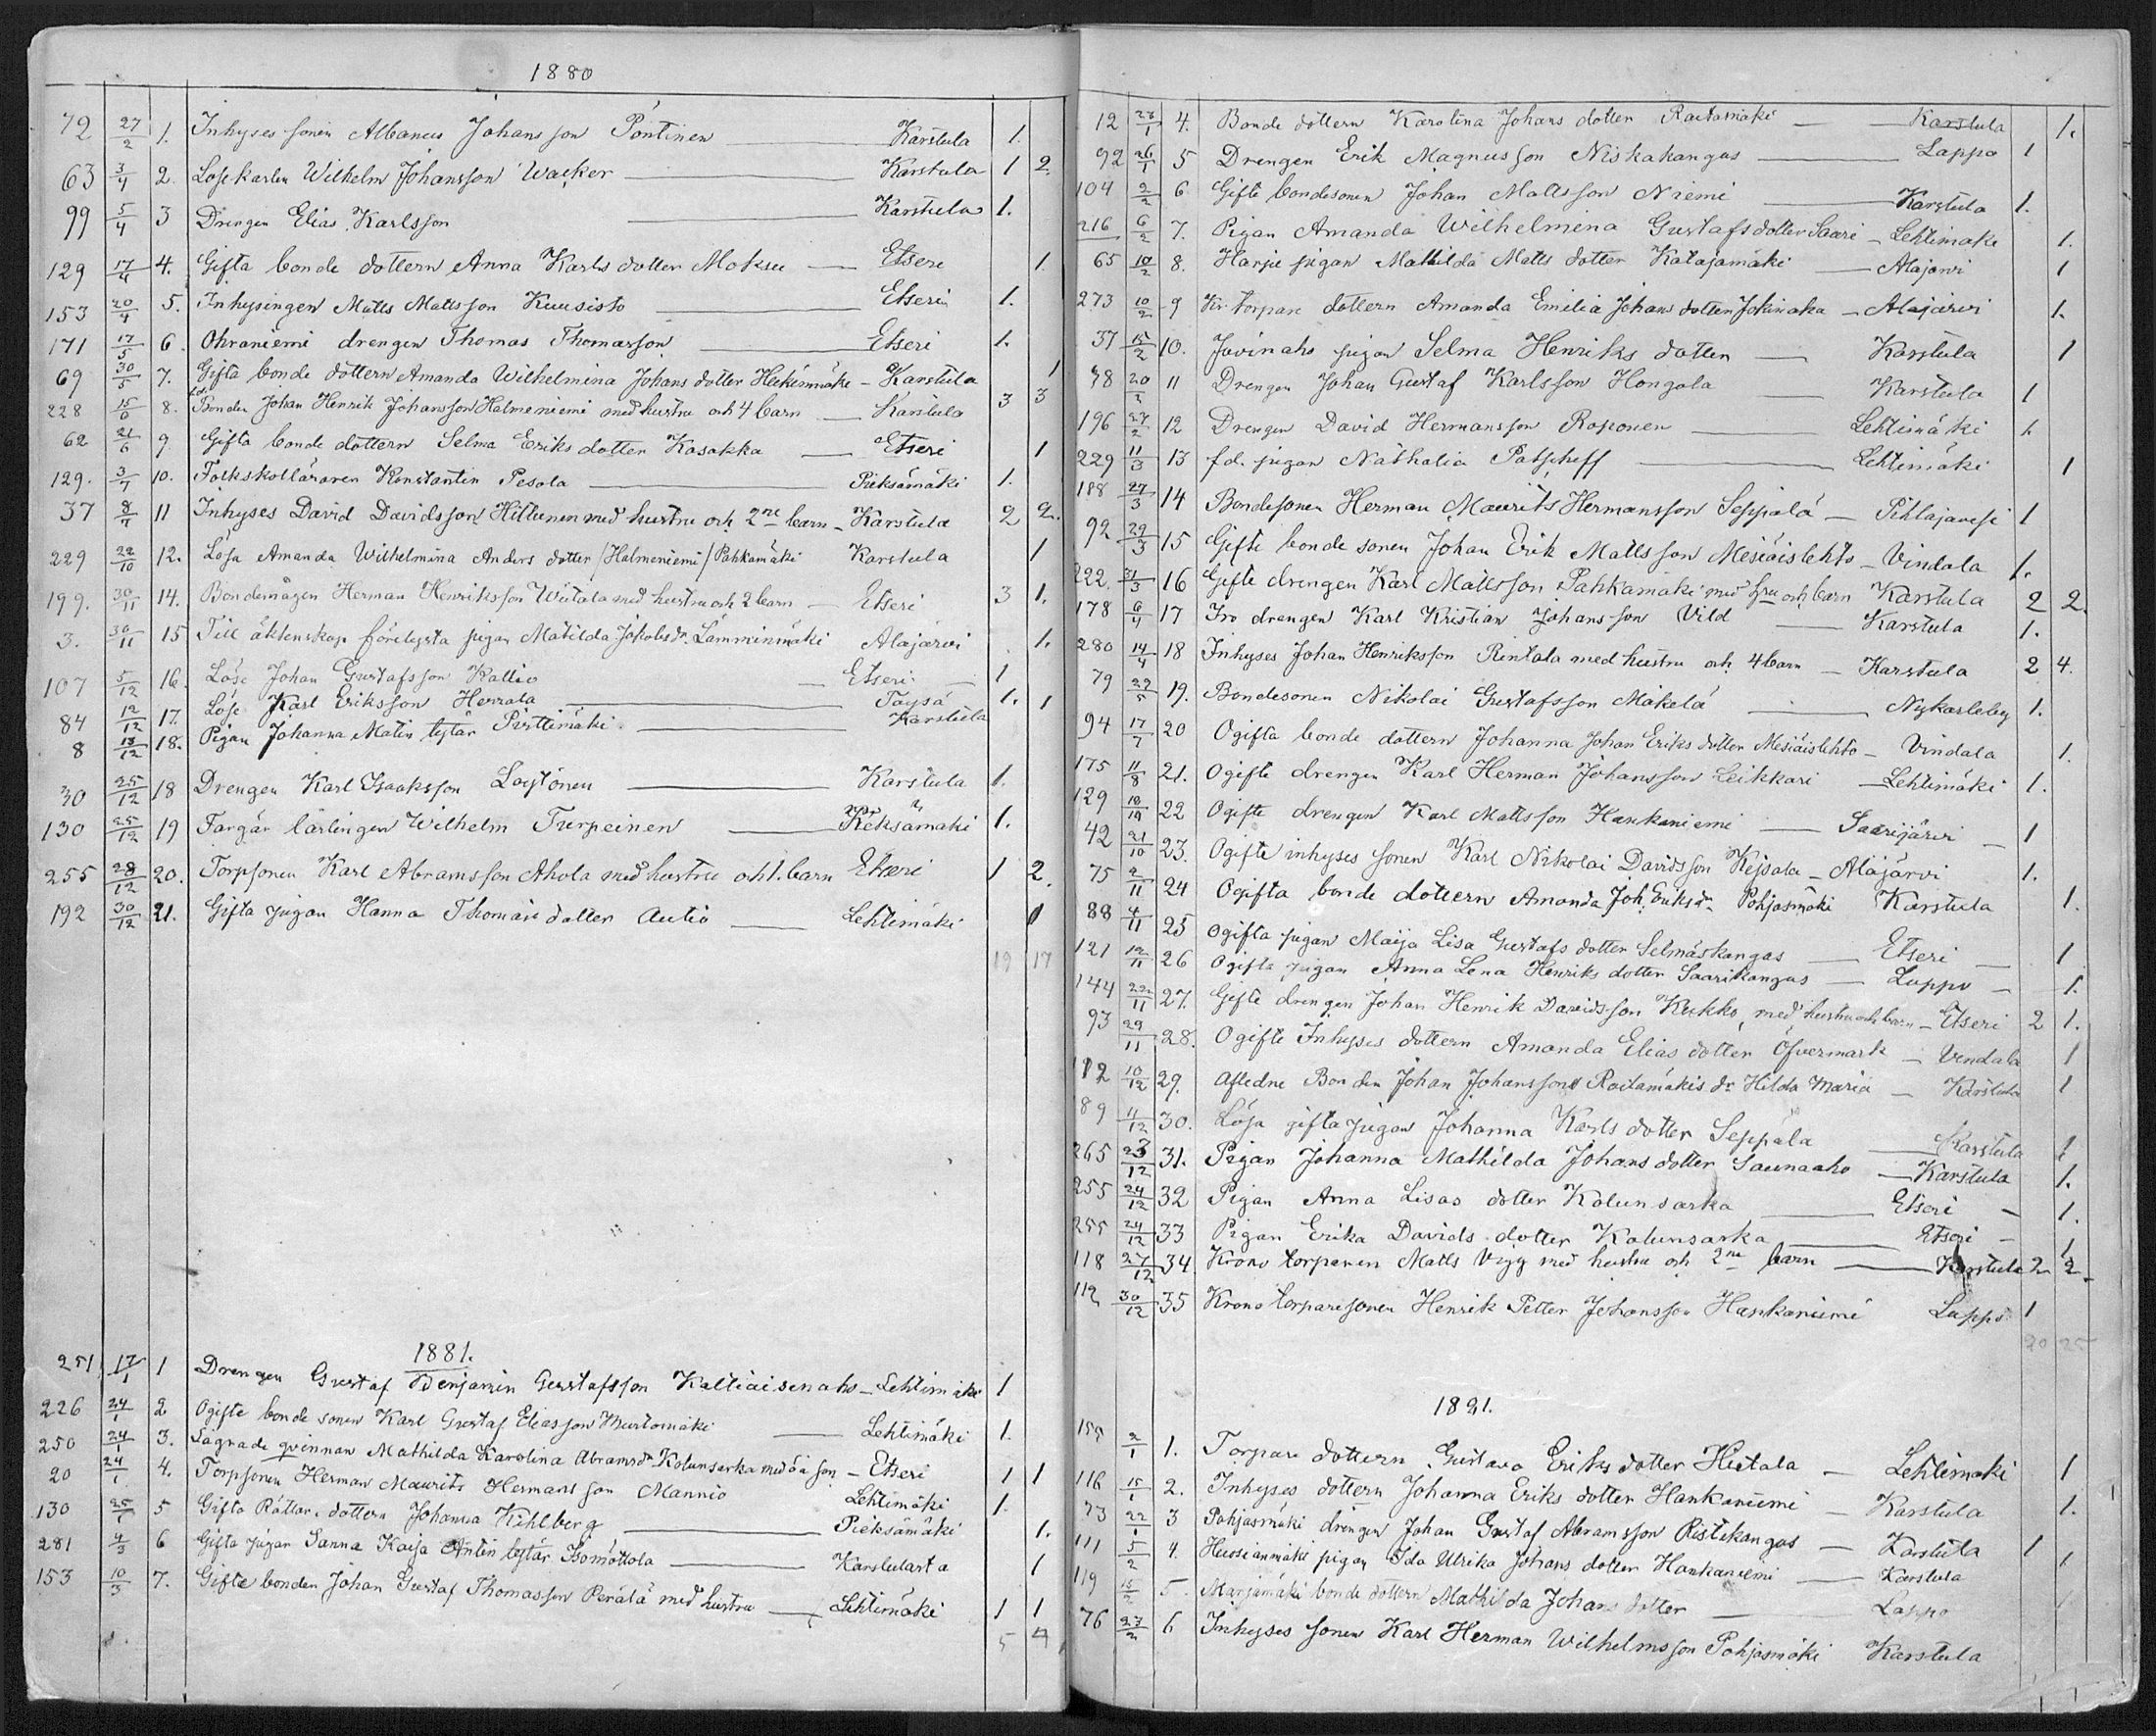 1880
72 27/2 1. Inhyses sonen Albanus Johansson Pöntinen — Karstula 1.
63 3/4 2. Lösekarlen Wilhelm Johansson Wacker — Karstula 1 2.
99 5/4 3 Drengen Elias Karlsson — Karstula 1.
129 17/4 4. Gifta bonde dottern Anna Karls dotter Moksu — Etseri 1.
153 20/4 5. Inhysingen Matts Mattsson Kuusisto — Etseri 1.
171 17/5 6. Ohraniemi drengen Thomas Thomasson — Etseri 1.
69 30/5 7. Gifta bonde dottern Amanda Wilhelmina Johans dotter — Karstula 1
228 15/6 8. Bonden Johan Henrik Johansson Halmeniemi med hustru och 4 barn — Karstula 3 3
62 21/6 9. Gifta bonde dottern Selma Eriks dotter Kasakka — Etseri 1
129. 3/7 10. Folkskolläraren Konstantin Pesola — Pieksämäki 1.
37 8/7 11 Inhyses David Davidsson Hiltunen med hustru och 2ne barn — Karstula 2 2.
229 22/10 12. Lösa Amanda Wilhelmina Anders dotter /Halmeniemi/ Pahkamäki Karstula 1
199. 30/11 14. Bondemågen Herman Henriksson Wiitala med hustru och 2 barn — Etseri 3 1.
3. 30/11 15 Till äktenskap förelysta pigan Matilda Jakobs dr. Lamminmäki Alajärvi 1.
107 5/12 16. Löse Johan Gustafsson Kallio — Etseri 1
84 12/12 17. Löse Karl Eriksson Henrala — Töysä 1.
8 13/12 18. Pigan Johanna Matin tytär Pirttimäki. — Karstula 1
30 25/12 18 Drengen Karl Isaaksson Löytönen — Karstula 1.
130 25/12 19 Färgär lärlingen Wilhelm Turpeinen — Pieksämäki 1.
255 28/12 20. Torpsonen Karl Abramsson Ahola med hustru och 1. barn Etseri 1 2.
192 30/12 21. Gifta pigan Hanna Thomas dotter Autio — Lehtimäki 1
19 17
1881.
251 17/1 1 Drengen Gustaf Benjamin Gustafsson Kattiaisenaho — Lehtimäki 1
226 24/1 2 Ogifte bonde sonen Karl Gustaf Eliasson Mustomäki — Lehtimäki 1.
250 24/1 3. Lägrade qvinnan Mathilda Karolina Abrams dr Kolunsarka med oä son — Etseri 1 1
20 24/1 4. Torpsonen Herman Maurits Hermansson Mannio Lehtimäki 1.
130 25/1 5 Gifta Rättar. dottern Johanna Kihlberg — Pieksämäki 1.
281 4/3 6 Gifta pigan Sanna Kaisa Antin tytär Isomöttola — Karstulasta 1
153 10/3 7. Gifte bonden Johan Gustaf Thomasson Perälä med hustru — Lehtimäki 1 1
5 4
12 23/1 4. Bonde dottern Karolina Johans dotter Raitamäki — Karstula 1.
92 26/1 5 Drengen Erik Magnusson Niskakangas — Lappo 1
104 2/2 6 Gifte bondesonen Johan Mattsson Niemi — Karstula 1.
216 6/2 7. Pigan Amanda Wilhelmina Gustafs dotter Saari — Lehtimäki 1.
65 10/2 8. Harju pigan Mathilda Matts dotter Katajamäki — Alajärvi 1
273 10/2 9 Kr. torpare dottern Amanda Emilia Johans dotter Jokiniaka — Alajärvi 1.
37 15/2 10. pigan Selma Henriks dotter — Karstula 1
38 20/2 11 Drengen Johan Gustaf Karlsson Hongola — Karstula 1
196 27/2 12 Drengen David Hermansson Roponen — Lehtimäki 1.
229 11/3 13 f.d. pigan Nathalia Patscheff — Lehtimäki 1
188 27/3 14 Bondesonen Herman Maurits Hermansson Seppälä — Pihlajavesi 1
92 29/3 15 Gifte bonde sonen Johan Erik Mattsson Mesiäislehto — Vindala 1.
222. 31/3 16 Gifte drengen Karl Mattsson Pahkamäki med hru och barn Karstula 2 2.
178 6/4 17 Iro drengen Karl Kristian Johansson Vild — Karstula 1.
280 14/4 18 Inhyses Johan Henriksson Rintala med hustru och 4 barn — Karstula 2 4.
79 29/5 19. Bondesonen Nikolai Gustafsson Mäkelä — Nykarleby 1.
94 17/7 20 Ogifta bonde dottern Johanna Johan Eriks dotter Mesiäislehto — Vindala 1.
175 11/8 21. Ogifte drengen Karl Herman Johansson Leikkari — Lehtimäki 1.
129 18/10 22 Ogifte drengen Karl Mattsson Hankaniemi — Saarijärvi — 1
42 21/10 23. Ogifte inhyses sonen Karl Nikolai Davidsson Kejsala — Alajärvi 1.
75 2/11 24 Ogifta bonde dottern Amanda Joh. Eriks dr. Pohjasmäki Karstula 1.
88 4/11 25 Ogifta pigan Maija Lisa Gustafs dotter Selmäskangas — Etseri — 1
121 12/11 26 Ogifta pigan Anna Lena Henriks dotter Saarikangas — Lappo — 1.
144 22/11 27. Gifte drengen Johan Henrik Davidsson Kukko, med hustru och barn — Etseri 2 1.
93 29/11 28. Ogifte Inhyses dottern Amanda Elias dotter Öfvermark — Vindala 1
112 10/12 29. Afledne Bonden Johan Johanssons Raitamäkis dr Hilda Maria — Karstula 1
89 11/12 30. Lösa gifta pigan Johanna Karls dotter Seppälä — Karstula 1
265 23/12 31. Pigan Johanna Mathilda Johans dotter Saunaaho — Karstula 1.
255 24/12 32 Pigan Anna Lisas dotter Kolunsarka — Etseri — 1.
255 24/12 33 Pigan Erika Davids dotter Kolunsarka — Etseri — 1
118 27/12 34 Krono torparen Matts Vigg med hustru och 2ne barn — Karstula 2 2.
112 30/12 35 Krono torparesonen Henrik Petter Johansson Hankaniemi Lappo 1
20 25
1881.
155 2/1 1. Torpare dottern Gustava Eriks dotter Hietala — Lehtimäki 1
116 15/1 2. Inhyses dottern Johanna Eriks dotter Hankaniemi — Karstula 1.
73 22/1 3 Pohjasmäki drengen Johan Gustaf Abramsson Ristikangas — Karstula 1
111 5/2 4. pigan Ida Ulrika Johans dotter Hankaniemi — Karstula 1
119 15/2 5. Marjamäki bonde dottern Mathilda Johans dotter — Lappo 1
76 23/2 6 Inhyses sonen Karl Herman Wilhelmsson Pohjasmäki Karstula